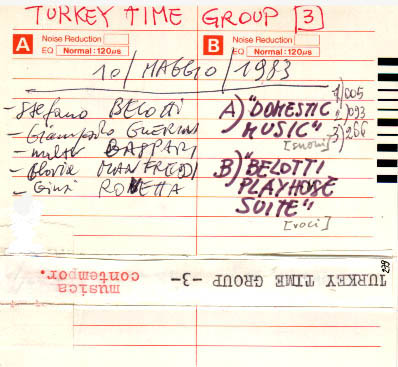 TURKEY TIME GROUP [3]
A Noise Reduction
EQ Normal:120µs
B Noise Reduction
EQ Normal:120µs
10/MAGGIO/1983
- Stefano BELOTTI
- Giampaolo GUERINI
- GASPARI
- MANFREDI
- Giusi
A) "DOMESTIC
MUSIC"
[suoni]
B) "BELOTTI
PLAYHOSE
SUITE"
[voci]
1) 005
2) 093
3) 266
TURKEY TIME GROUP -3-
musica
contempor.